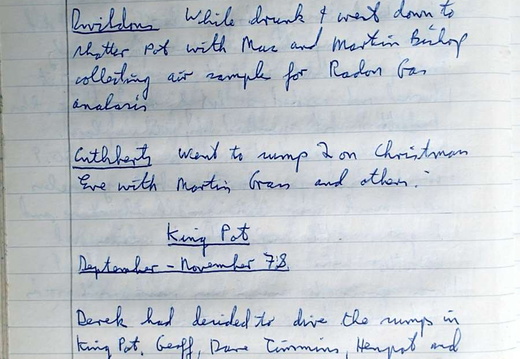 Swildons While drunk I went down to
Shatter Pot with Mac and Martin Bishop
collecting air sample for Radon Gas
analasis
Cuthberts Went to sump 2 on Christmas
Eve with Martin Grass and others.
King Pot
September - November 78
Derek had decided to dive the sumps in
King Pot. Geoff, Dave Timmins, Henpot and